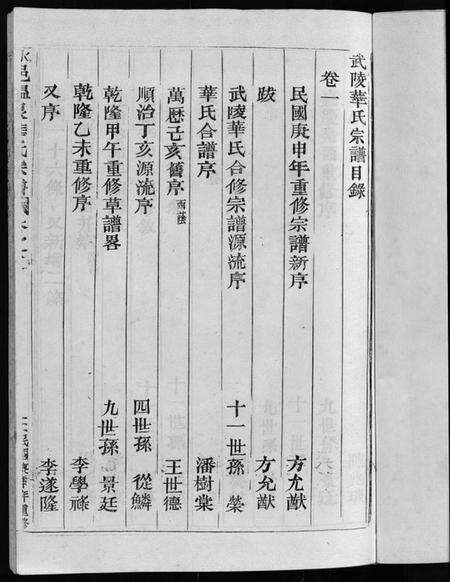 武陵華氏宗譜目錄
卷一
民國庚申年重修宗譜新序 方允猷
跋 方允猷
武陵華氏合修宗譜源流序 十一世孫 榮
華氏合譜序 潘樹棠
萬歷己亥舊序 西蔭 王世德
順治丁亥源流序 四世孫 從鱗
乾隆甲午重修草譜畧 九世孫 景廷
乾隆乙未重修序 李學祿
又序 李遂隆
民國庚申年重修